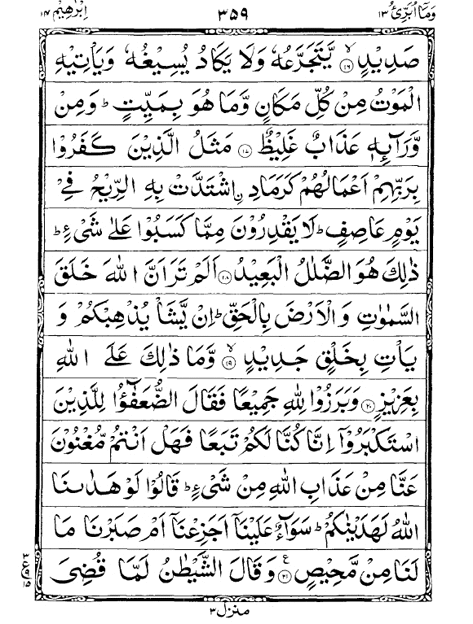 وَمَآ اُبَرِّئُ ۱۳ ۳۵۹ اِبْرٰهِيْم ۱۴
صَدِيْدٍ ۙ‏﴿۱۶﴾ يَّتَجَرَّعُهٗ وَلَا يَكَادُ يُسِيْغُهٗ وَيَاْتِيْهِ
الْمَوْتُ مِنْ كُلِّ مَكَانٍ وَّمَا هُوَ بِمَيِّتٍ ؕ وَمِنْ
وَّرَآئِهٖ عَذَابٌ غَلِيْظٌ ﴿۱۷﴾ مَثَلُ الَّذِيْنَ كَفَرُوْا
بِرَبِّهِمْ اَعْمَالُهُمْ كَرَمَادِ ۟اشْتَدَّتْ بِهِ الرِّيْحُ فِيْ
يَوْمٍ عَاصِفٍ ؕ لَا يَقْدِرُوْنَ مِمَّا كَسَبُوْا عَلٰى شَيْءٍ ؕ
ذٰلِكَ هُوَ الضَّلٰلُ الْبَعِيْدُ ﴿۱۸﴾ اَلَمْ تَرَ اَنَّ اللّٰهَ خَلَقَ
السَّمٰوٰتِ وَالْاَرْضَ بِالْحَقِّ ؕ اِنْ يَّشَاْ يُذْهِبْكُمْ وَ
يَاْتِ بِخَلْقٍ جَدِيْدٍ ۙ﴿۱۹﴾ وَّمَا ذٰلِكَ عَلَى اللّٰهِ
بِعَزِيْزٍ ﴿۲۰﴾ وَبَرَزُوْا لِلّٰهِ جَمِيْعًا فَقَالَ الضُّعَفٰٓؤُا لِلَّذِيْنَ
اسْتَكْبَرُوْٓا اِنَّا كُنَّا لَكُمْ تَبَعًا فَهَلْ اَنْتُمْ مُّغْنُوْنَ
عَنَّا مِنْ عَذَابِ اللّٰهِ مِنْ شَيْءٍ ؕ قَالُوْا لَوْ هَدٰىنَا
اللّٰهُ لَهَدَيْنٰكُمْ ؕ سَوَآءٌ عَلَيْنَآ اَجَزِعْنَآ اَمْ صَبَرْنَا مَا
لَنَا مِنْ مَّحِيْصٍ ﴿۲۱﴾ وَقَالَ الشَّيْطٰنُ لَمَّا قُضِيَ
منزل ۳